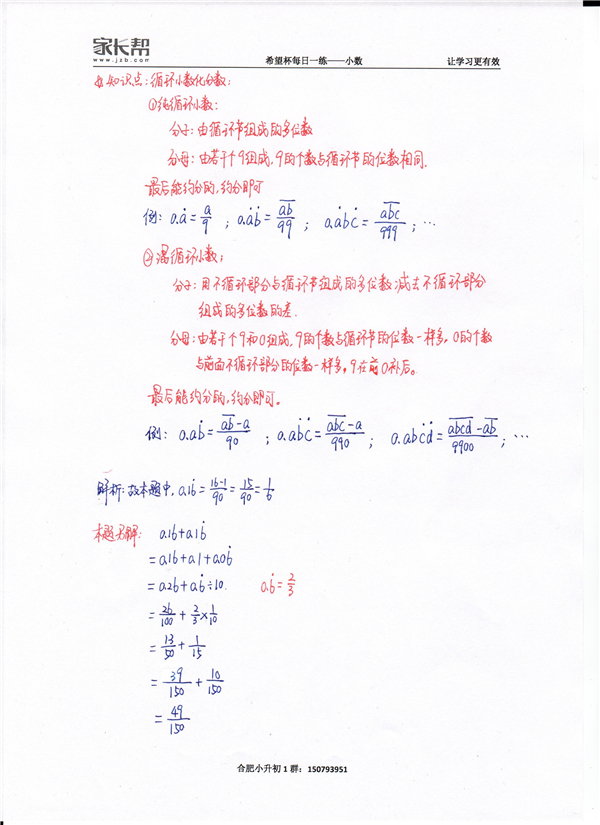 家长帮
www.jzb.com
希望杯每日一练——小数
让学习更有效
知识点:循环小数化分数:
①纯循环小数:
分子:由循环节组成的多位数
分母:由若干个9组成,9的个数与循环节的位数相同.
最后能约分的,约分即可
例: 0.ȧ = a/9 ; 0.ȧḃ = ab/99 ; 0.ȧbċ = abc/999 ; …
②混循环小数:
分子:用不循环部分与循环节组成的多位数减去不循环部分
组成的多位数的差.
分母:由若干个9和0组成,9的个数与循环节的位数一样多,0的个数
与前面不循环部分的位数一样多,9在前0补后。
最后能约分的,约分即可。
例: 0.aḃ = ab-a/90 ; 0.aḃċ = abc-a/990 ; 0.abċḋ = abcd-ab/9900 ; …
解析:故本题中,0.16̇ = 16-1/90 = 15/90 = 1/6
本题另解: 0.16+0.16̇
=0.16+0.1+0.06̇
=0.26+0.6̇÷10. 0.6̇=2/3
=26/100+2/3×1/10
=13/50+1/15
=39/150+10/150
=49/150
合肥小升初1群:150793951